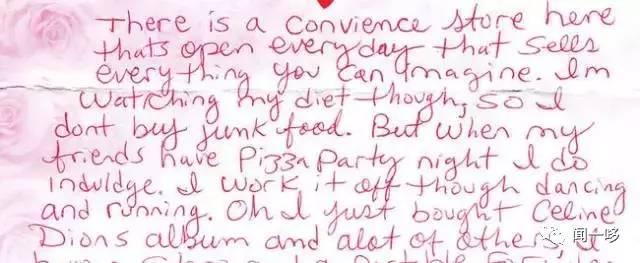 There is a convience store here
thats open everyday that sells
everything you can imagine. Im
watching my diet though, so I
dont buy junk food. But when my
friends have Pizza Party night I do
induldge. I work it off though dancing
and running. Oh I just bought Celine
Dions album and alot of others. I
闻一哆